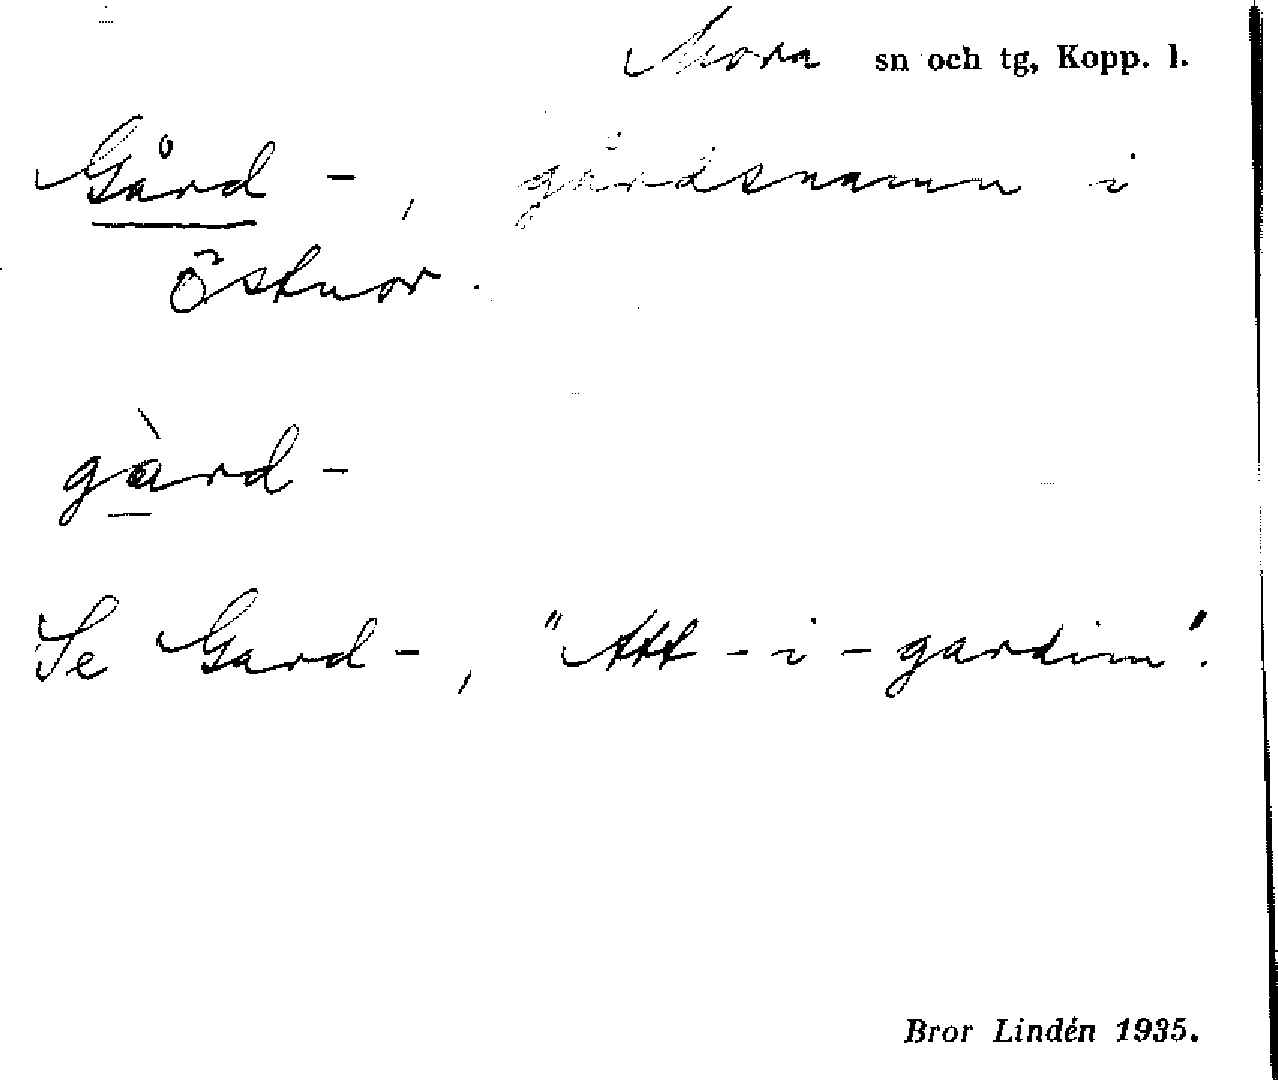 Mora sn och tg, Kopp. l.
Gård-, gårdsnamn i
Östnor.
gàrd-
Se Gard-, "Att-i-gardim".
Bror Lindén 1935.